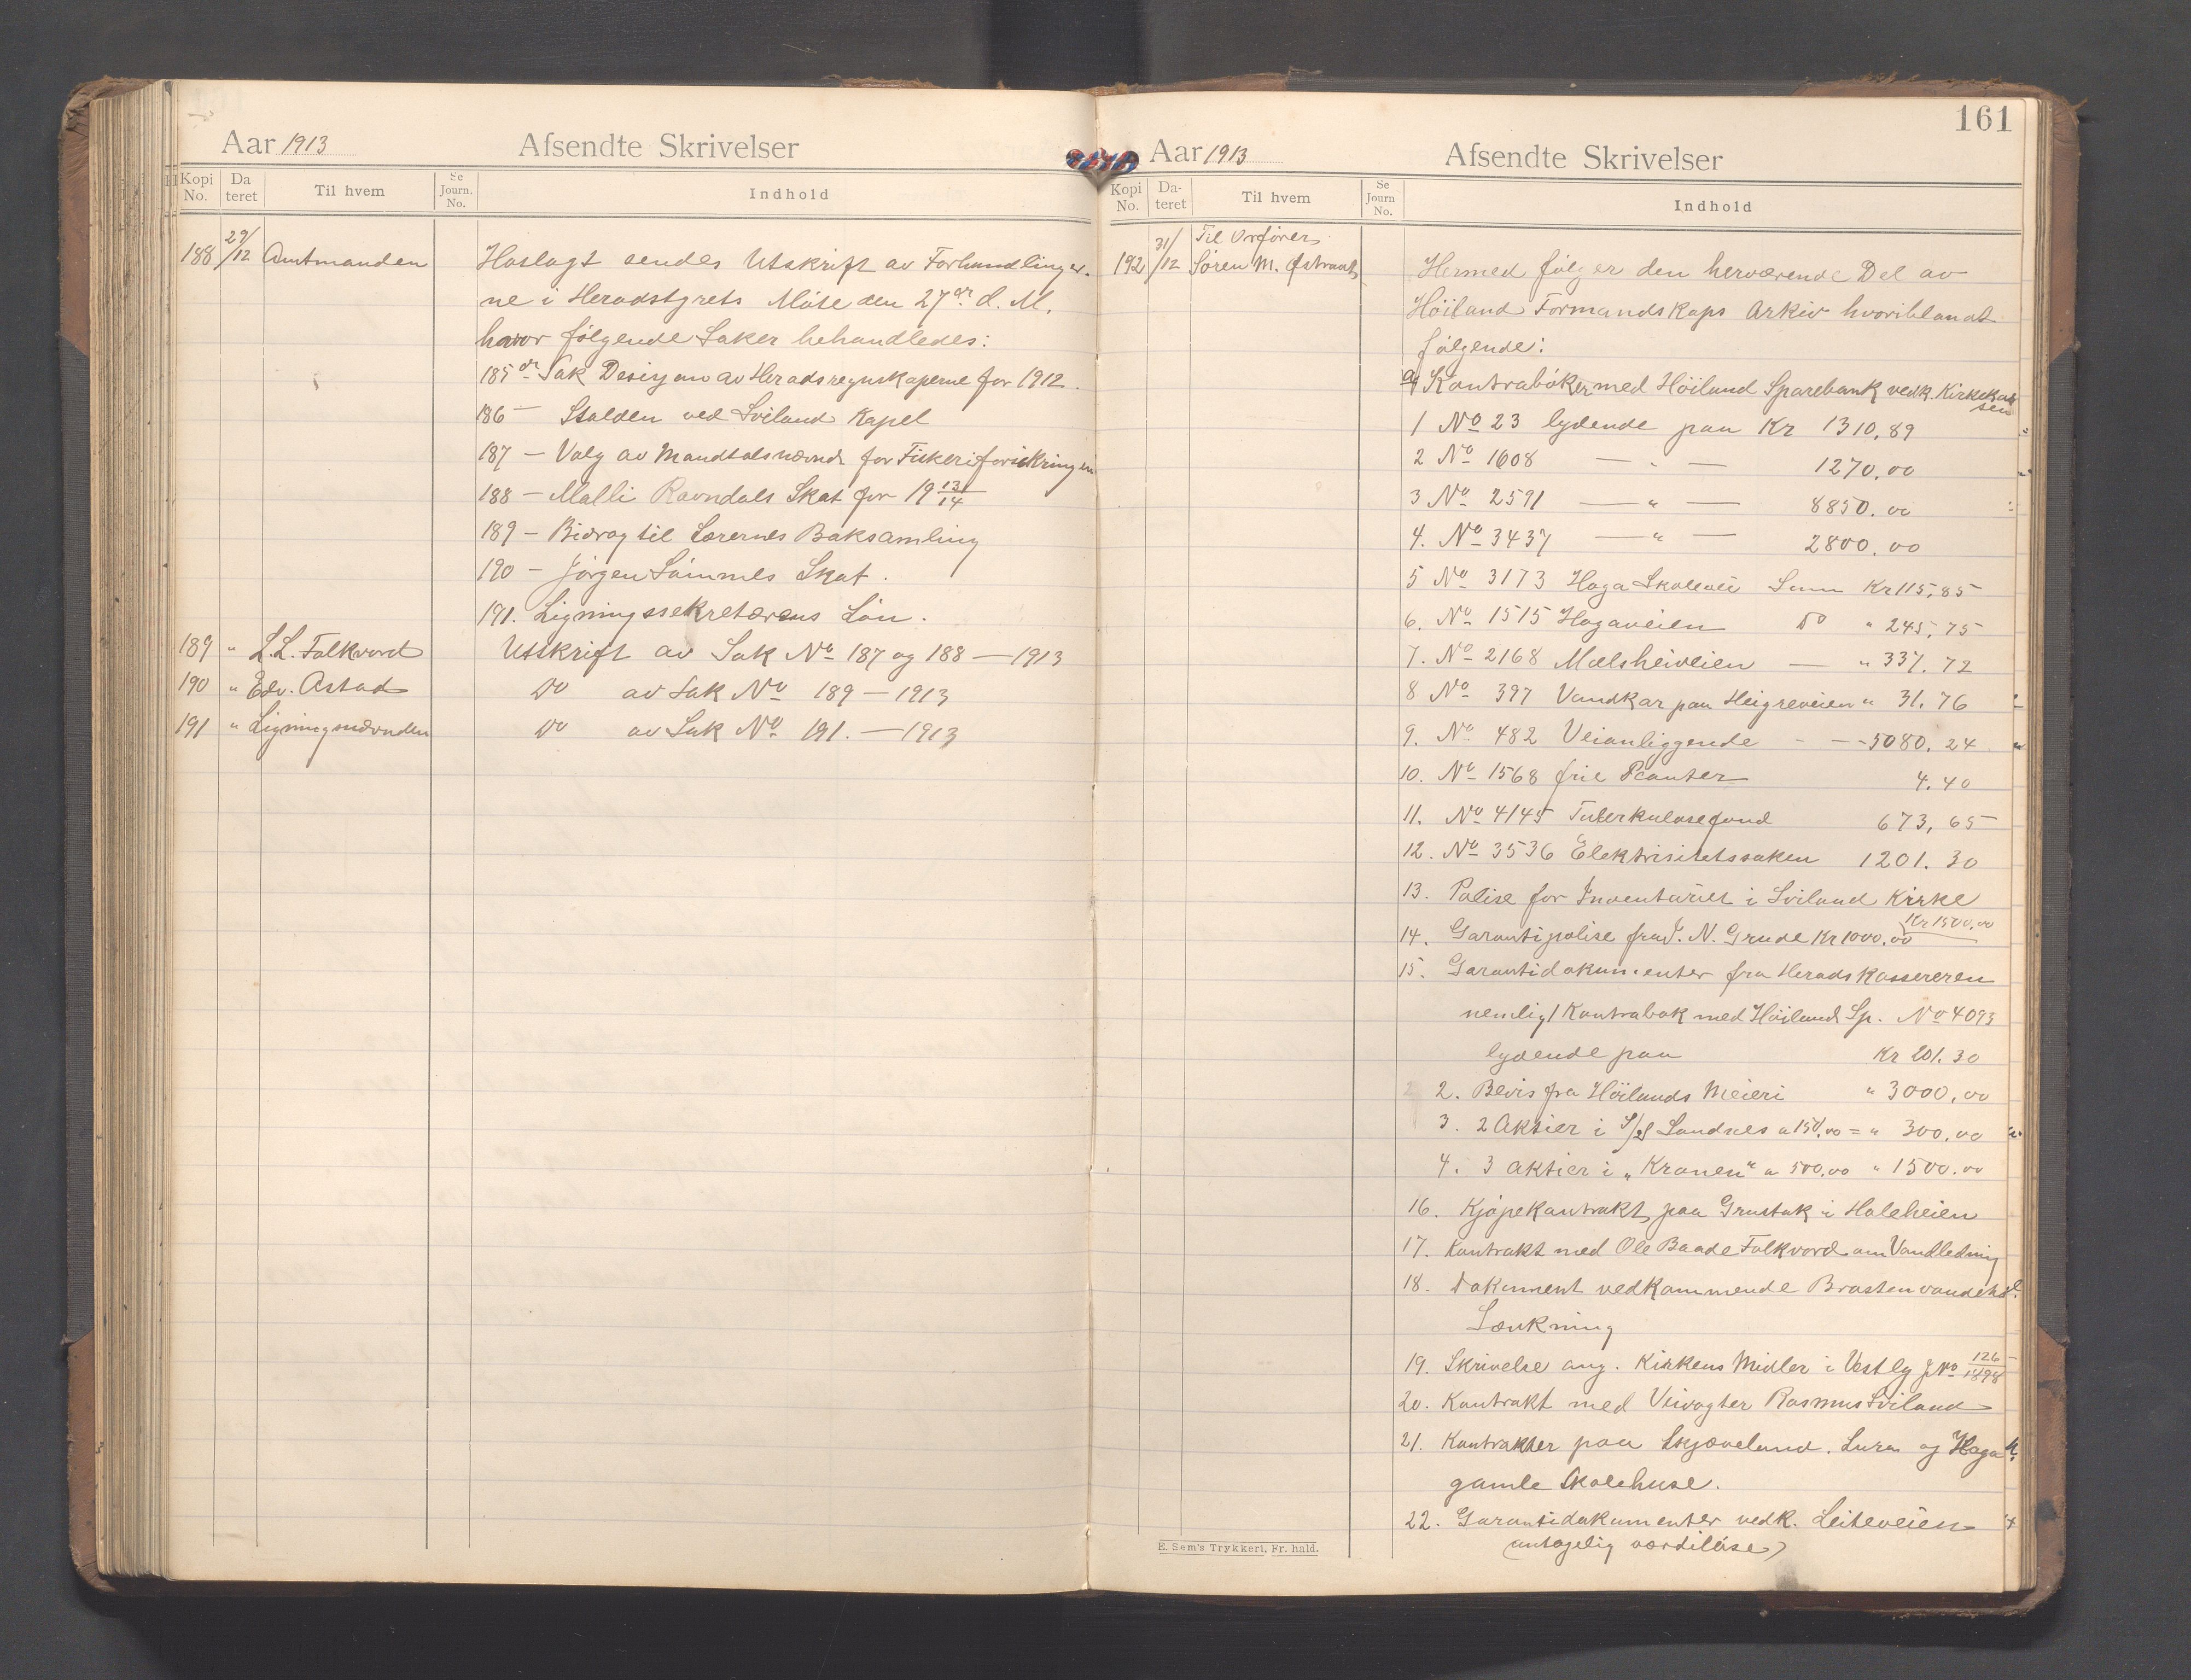 Aar 1913 Afsendte Skrivelser
Kopi No. Da teret Til hvem Se Journ. No. Indhold
188 29/12 Amtmanden Hoslagt sendes Utskrift av Forhandlinger-
ne i Heradstyrets Möte den 27de d. M.
hvor følgende Saker behandledes:
185de Sak Desisjon av Heradsregnskaperne for 1912.
186 — Stalden ved Sviland Kapel
187 — Valg av Mandtalsnævnd for Fiskeriforsikringen
188 — Malli Ravndals Skat for 19 13/14
189 — Bidrag til Lærernes Boksamling
190 — Jörgen Sömmes Skat.
191. Ligningssekretærens Lön.
189 " L.L. Folkvord Utskrift av Sak No 187 og 188 — 1913
190 " Edv. Astad Do av Sak No 189 — 1913
191 " Ligningsnævnden Do av Sak No 191. — 1913
161
Aar 1913 Afsendte Skrivelser
Kopi No. Da- teret Til hvem Se Journ No. Indhold
192 31/12 Til Ordfører
Søren M. Østraat Hermed følger den herværende Del av
Höiland Formandskaps Arkiv hvoriblandt
følgende:
a) Kontraböker med Höiland Sparebank vedk. Kirkekas
sen
1 No 23 lydende paa Kr 1310,89
2 No 1608 — " — 1270,00
3 No 2591 — " — 8850.00
4. No 3437 — " — 2800.00
5 No 3173 Hoga Skolevei Sum Kr 115,85
6. No 1515 Hogaveien Do " 245,75
7. No 2168 Mælsheiveien — " 337.72
8 No 397 Vandkar paa Heigreveien " 31.76
9. No 482 Veianliggende - — - 5080.24
10. No 1568 frie Planter 4.40
11. No 4145 Tuberkulosefond 673,65
12. No 3536 Elektrisitetssaken 1201.30
13. Polise for Inventariet i Sviland Kirke
Kr 1500,00
14. Garantipolise fra J. N. Grude Kr 1000,00
15. Garantidokumenter fra Heradskassereren
nemlig 1 Kontrabok med Höiland Sp. No 4093
lydende paa Kr 201.30
2. Bevis fra Höilands Meieri " 3000,00
3. 2 Aktier i S/S Sandnes a 150,00 = " 300,00
4. 3 Aktier i „Kronen" a 500,00 " 1500.00
16. Kjöpekontrakt paa Grustak i Holeheien
17. Kontrakt med Ole Baade Folkvord om Vandledning
18. Dokument vedkommende Brastenvandets
Sænkning
19. Skrivelse ang. Kirkens Midler i Vestly JNo 126/1898
20. Kontrakt med Veivogter Rasmus Sviland
21. Kontrakter paa Skjæveland. Lura og Hoga
gamle Skolehuse.
22. Garantidokumenter vedk. Leiteveien
(antagelig værdilöse)
E. Sem's Trykkeri, Fr. hald.